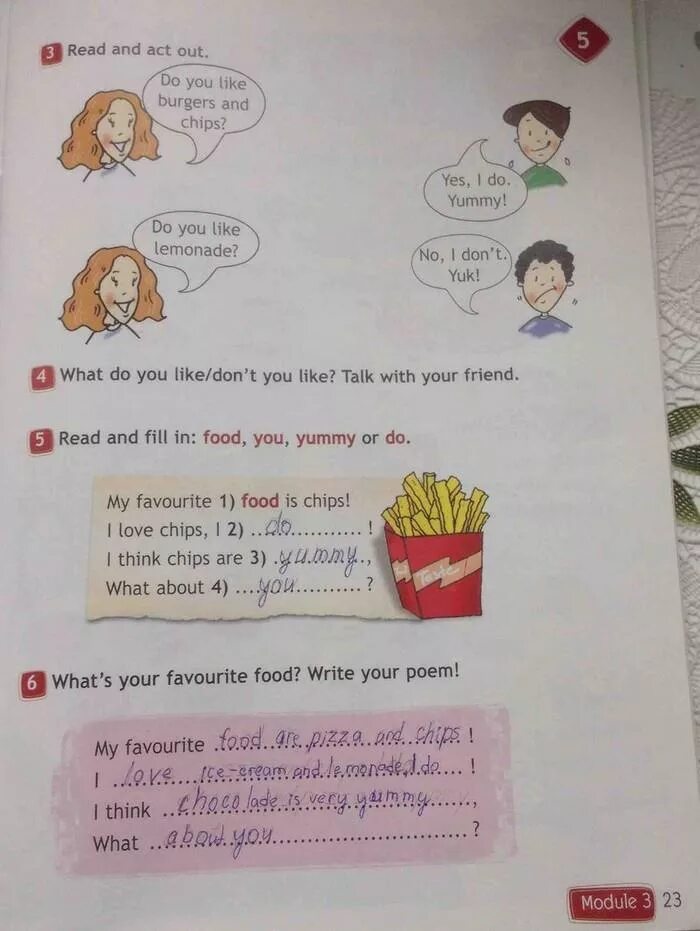 3 Read and act out.
5
Do you like
burgers and
chips?
Yes, I do.
Yummy!
Do you like
lemonade?
No, I don't.
Yuk!
4 What do you like/don't you like? Talk with your friend.
5 Read and fill in: food, you, yummy or do.
My favourite 1) food is chips!
I love chips, I 2) ..do............!
I think chips are 3) .yummy..,
What about 4) ....you...........?
Taste
6 What's your favourite food? Write your poem!
My favourite food are pizza and chips!
I love ice-cream and lemonade, I do!
I think chocolade is very yummy,
What about you?
Module 3 23